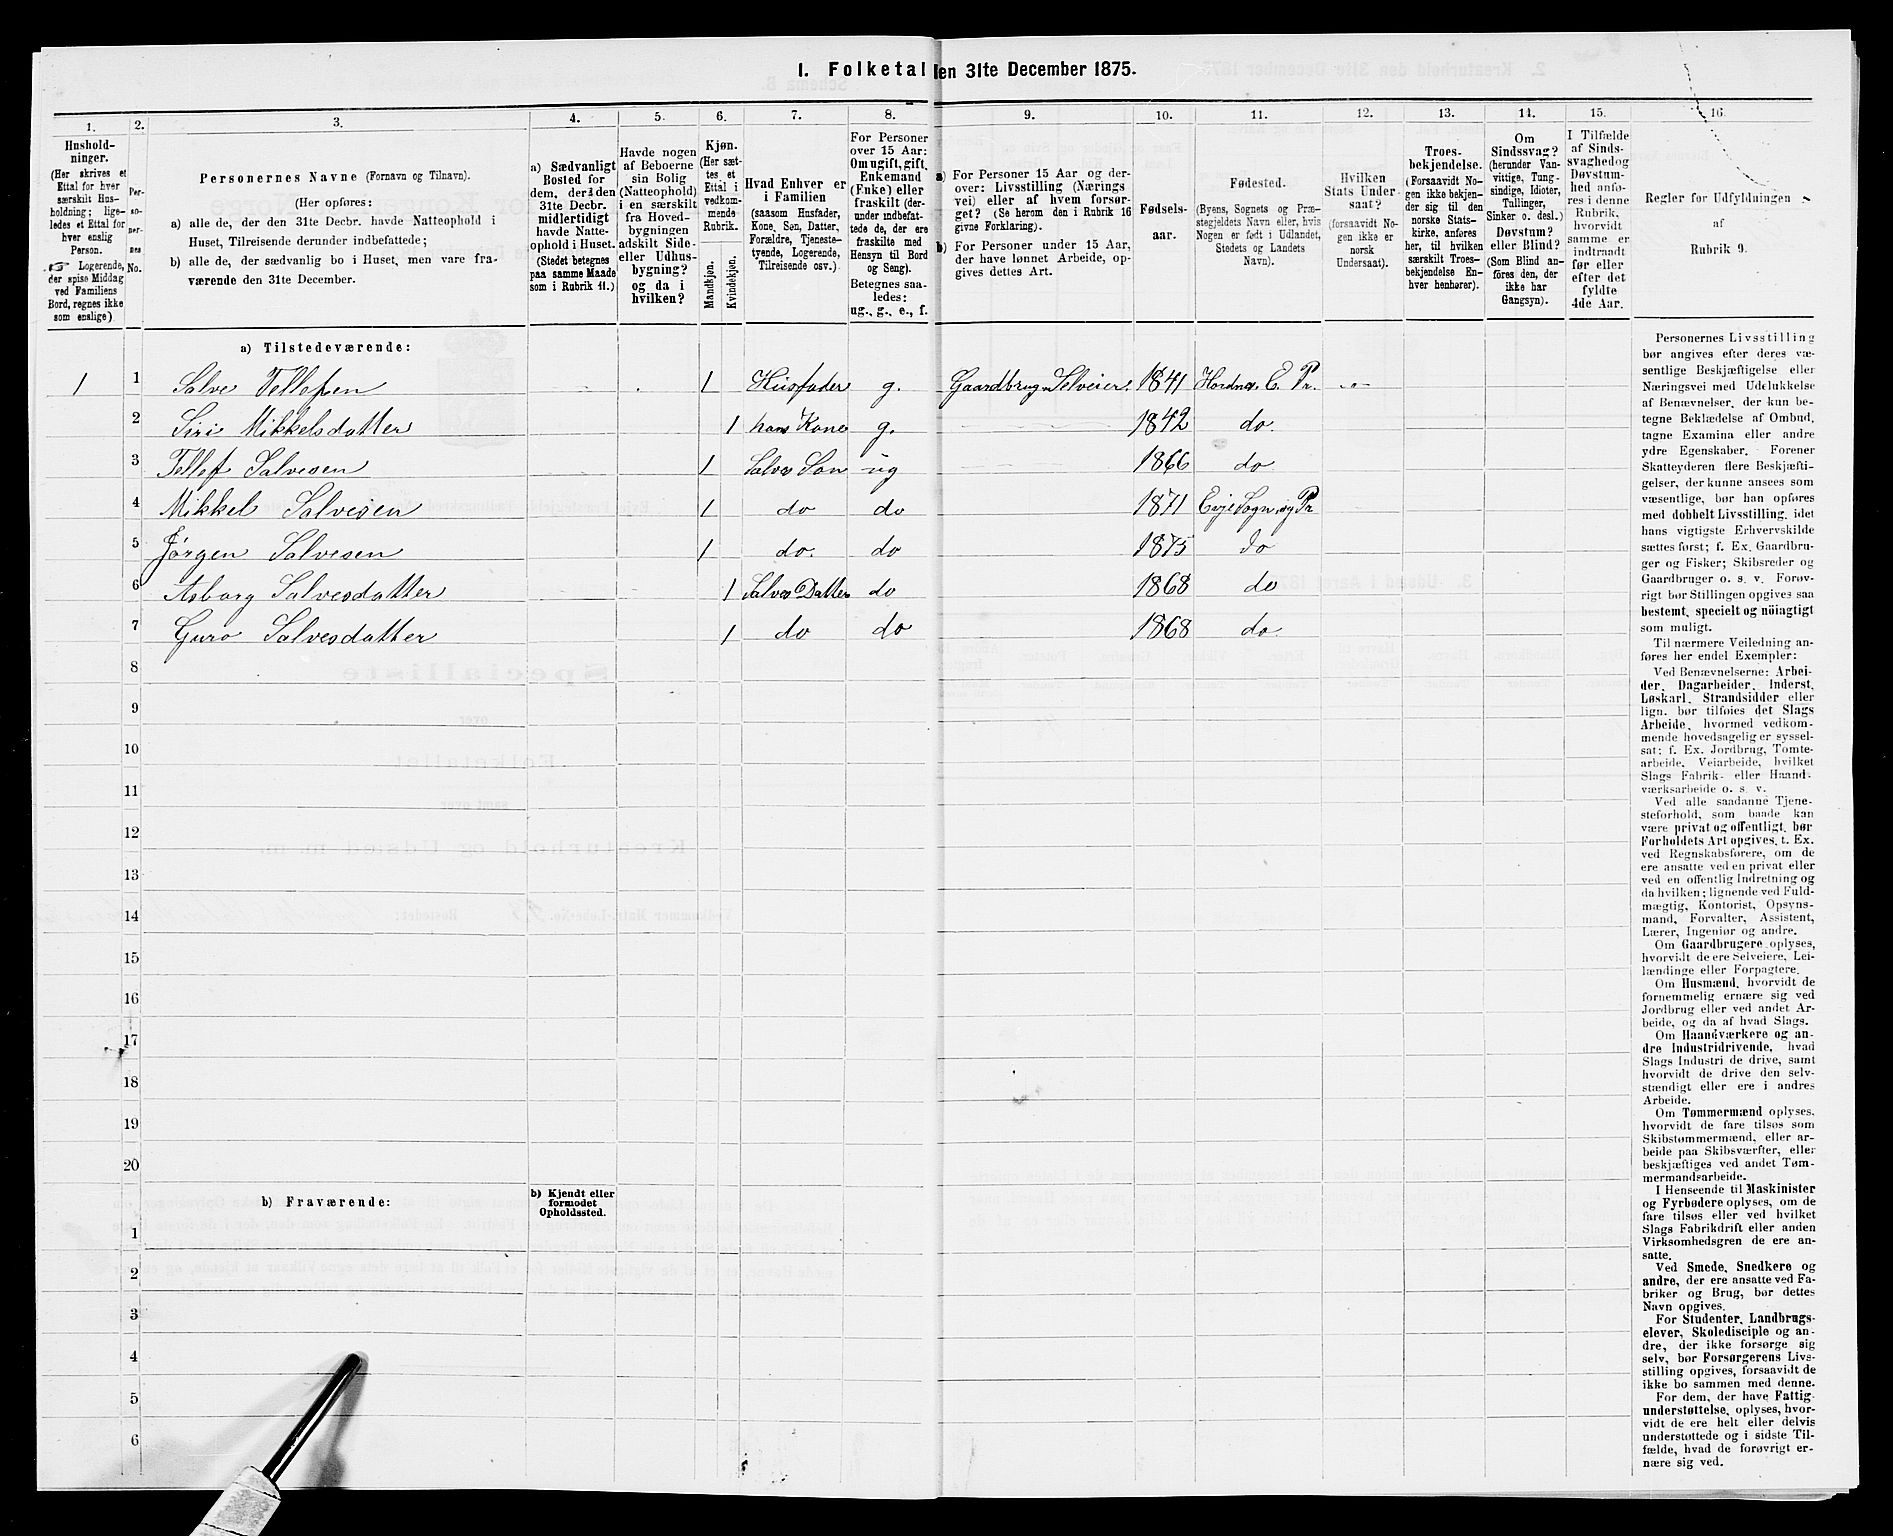 I. Folketal den 31te December 1875.
1.
Hushold-
ninger.
(Her skrives et
Ettal for hver
særskilt Hus-
holdning; lige-
ledes et Ettal for
hver enslig
Person.
☞ Logerende,
der spise Middag
ved Familiens
Bord, regnes ikke
som enslige)
2.
Per-
so-
ner-
nes
No.
3.
Personernes Navne (Fornavn og Tilnavn).
(Her opføres:
a) alle de, der den 31te Decbr. havde Natteophold i
Huset, Tilreisende derunder indbefattede;
b) alle de, der sædvanlig bo i Huset, men vare fra-
værende den 31te December.
4.
a) Sædvanligt
Bosted for
dem, der å den
31te Decbr.
midlertidigt
havde Natte-
ophold i Huset.
(Stedet betegnes
paa samme Maade
som i Rubrik 11.)
5.
Havde nogen
af Beboerne
sin Bolig
(Natteophold)
i en særskilt
fra Hoved-
bygningen
adskilt Side-
eller Udhus-
bygning?
og da i
hvilken?
6.
Kjøn.
(Her sæt-
tes et
Ettal i
vedkom-
mende
Rubrik.
Mandkjøn.
Kvindekjøn.
7.
Hvad Enhver er
i Familien
(saasom Husfader,
Kone, Søn, Datter,
Forældre, Tjeneste-
tyende, Logerende,
Tilreisende osv.)
8.
For Personer
over 15 Aar:
Om ugift, gift,
Enkemand
(Enke) eller
fraskilt (der-
under indbefat-
tede de, der ere
fraskilte med
Hensyn til Bord
og Seng).
Betegnes saa-
ledes:
ug., g., e., f.
9.
a) For Personer 15 Aar og der-
over: Livsstilling (Nærings
vei) eller af hvem forsør-
get? (Se herom den i Rubrik 16
givne Forklaring).
b) For Personer under 15 Aar,
der have lønnet Arbeide, op-
gives dettes Art.
10.
Fødsels-
aar.
11.
Fødested.
(Byens, Sognets og Præ-
stegjeldets Navn eller, hvis
Nogen er født i Udlandet,
Stedets og Landets
Navn).
12.
Hvilken
Stats Under-
saat?
(forsaavidt No-
gen ikke er
norsk
Undersaat).
13.
Troes-
bekjendelse.
(Forsaavidt No-
gen ikke bekjen-
der sig til den
norske Stats-
kirke, anføres
her, til hvilken
særskilt Troes-
bekjendelse En-
hver henhører).
14.
Om
Sindssvag?
(herunder Van-
vittige, Tung-
sindige, Idioter,
Tallinger,
Sinker o. desl.)
Døvstum?
eller Blind?
(Som Blind an-
føres den, der
ikke har
Gangsyn).
15.
I Tilfælde
af Sinds-
svaghed og
Døvstum-
hed anfø-
res i denne
Rubrik,
hvorvidt
samme er
indtraadt
før eller
efter det
fyldte
4de Aar.
16.
Regler for Udfyldningen
af
Rubrik 9.
a) Tilstedeværende:
1 1 Salve Tellefsen 1 Husfader g. Gaardbrug. Selveier. 1841 Hordnes E. Pr. -"-
2 Siri Mikkelsdatter 1 hans Kone g. 1842 do.
3 Tellef Salvesen 1 Salves Søn ug 1866 do
4 Mikkel Salvesen 1 do do 1871 Evje Sogn og Pr
5 Jørgen Salvesen 1 do. do 1875 do
6 Asborg Salvesdatter 1 Salves Datter do 1868 do
7 Guro Salvesdatter 1 do do 1868 do.
8
9
10
11
12
13
14
15
16
17
18
19
20
b) Fraværende:
b) Kjendt eller
formodet
Opholdssted.
1
2
3
4
5
6
Personernes Livsstilling
bør angives efter deres væ-
sentlige Beskjæftigelse eller
Næringsvei med Udelukkelse
af Benævnelser, der kun be-
tegne Beklædelse af Ombud,
tagne Examina eller andre
ydre Egenskaber. Forener
Skatteyderen flere Beskjæfti-
gelser, der kunne ansees som
væsentlige, bør han opføres
med dobbelt Livsstilling, idet
hans vigtigste Erhvervskilde
sættes først; f. Ex. Gaardbru-
ger og Fisker; Skibsreder og
Gaardbruger o. s. v. Forøv-
rigt bør Stillingen opgives saa
bestemt, specielt og nöiagtigt
som muligt.
Til nærmere Veiledning an-
føres her endel Exempler:
Ved Benævnelserne: Arbei-
der, Dagarbeider, Inderst,
Løskarl, Strandsidder eller
lign. bør tilføies det Slags
Arbeide, hvormed vedkom-
mende hovedsagelig er syssel-
sat; f. Ex. Jordbrug, Tomte-
arbeide, Veiarbeide, hvilket
Slags Fabrik- eller Haand-
værksarbeide o. s. v.
Ved alle saadanne Tjene-
steforhold, som baade kan
være privat og offentligt, bør
Forholdets Art opgives, t. Ex.
ved Regnskabsførere, om de
ere ansatte ved en privat eller
ved en offentlig Indretning og
da hvilken; lignende ved Fuld-
mægtig, Kontorist, Opsyns-
mand, Forvalter, Assistent,
Lærer, Ingeniør og andre.
Om Gaardbrugere oplyses,
hvorvidt de ere Selveiere, Lei-
lændinge eller Forpagtere.
Om Husmænd, hvorvidt de
fornemmelig ernære sig ved
Jordbrug eller ved andet Ar-
beide, og da af hvad Slags.
Om Haandværkere og an-
dre Industridrivende, hvad
Slags Industri de drive, samt
hvorvidt de drive den selv-
stændigt eller ere i andres
Arbeide.
Om Tømmermænd oplyses,
hvorvidt de fare tilsøs som
Skibstømmermænd, eller ar-
beide paa Skibsværfter, eller
beskjæftiges ved andet Tøm-
mermandsarbeide.
I Henseende til Maskinister
og Fyrbødere oplyses, om de
fare tilsøs eller ved hvilket
Slags Fabrikdrift eller anden
Virksomhedsgren de ere an-
satte.
Ved Smede, Snedkere og
andre, der ere ansatte ved Fa-
briker og Brug, bør dettes
Navn opgives.
For Studenter, Landbrugs-
elever, Skoledisciple og an-
dre, der ikke forsørge sig
selv, bør Forsørgerens Livs-
stilling opgives, forsaavidt de
ikke bo sammen med denne.
For dem, der have Fattig-
understøttelse, oplyses, hvor-
vidt de ere helt eller delvis
understøttede og i sidste Til-
fælde, hvad de forøvrigt er-
nære sig ved.